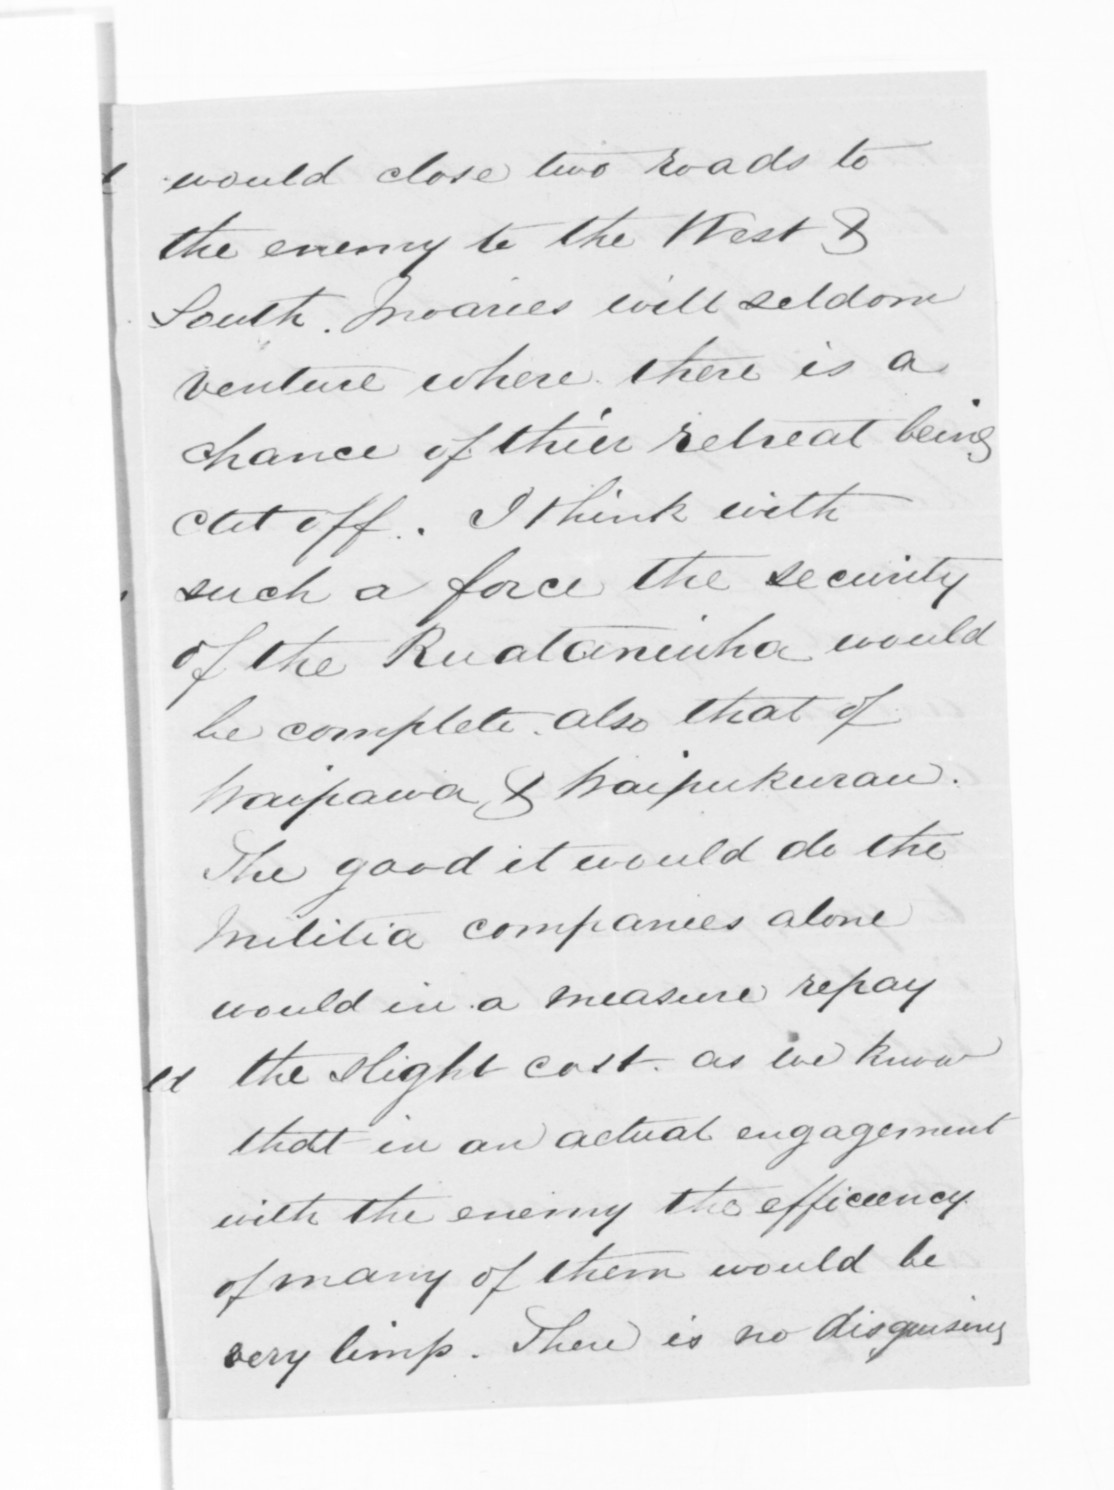 would close two roads to
the enemy to the West &
South. Maories will seldom
venture where there is a
chance of thier retreat being
cut off. I think with
such a force the security
of the Ruataniwha would
be complete. also that of
Waipawa & Waipukurau.
The good it would do the
Militia companies alone
would in a measure repay
the slight cost. as we know
that in an actual engagement
with the enemy the efficiency
of many of them would be
very limp. There is no disguising